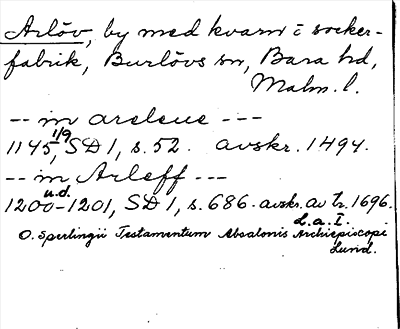 Arlöv, by med kvarn o socker-
fabrik, Burlövs sn, Bara hd,
Malm. l.
-- in areleue ---
1145 1/9, SD 1, s. 52. avskr. 1494.
-- in Arleff ---
u.d.
1200-1201, SD 1, s. 686. avskr. av tr. 1696.
L.a.I.
O. Sperlingii Testamentum Absalonis Archiepiscopi
Lund.